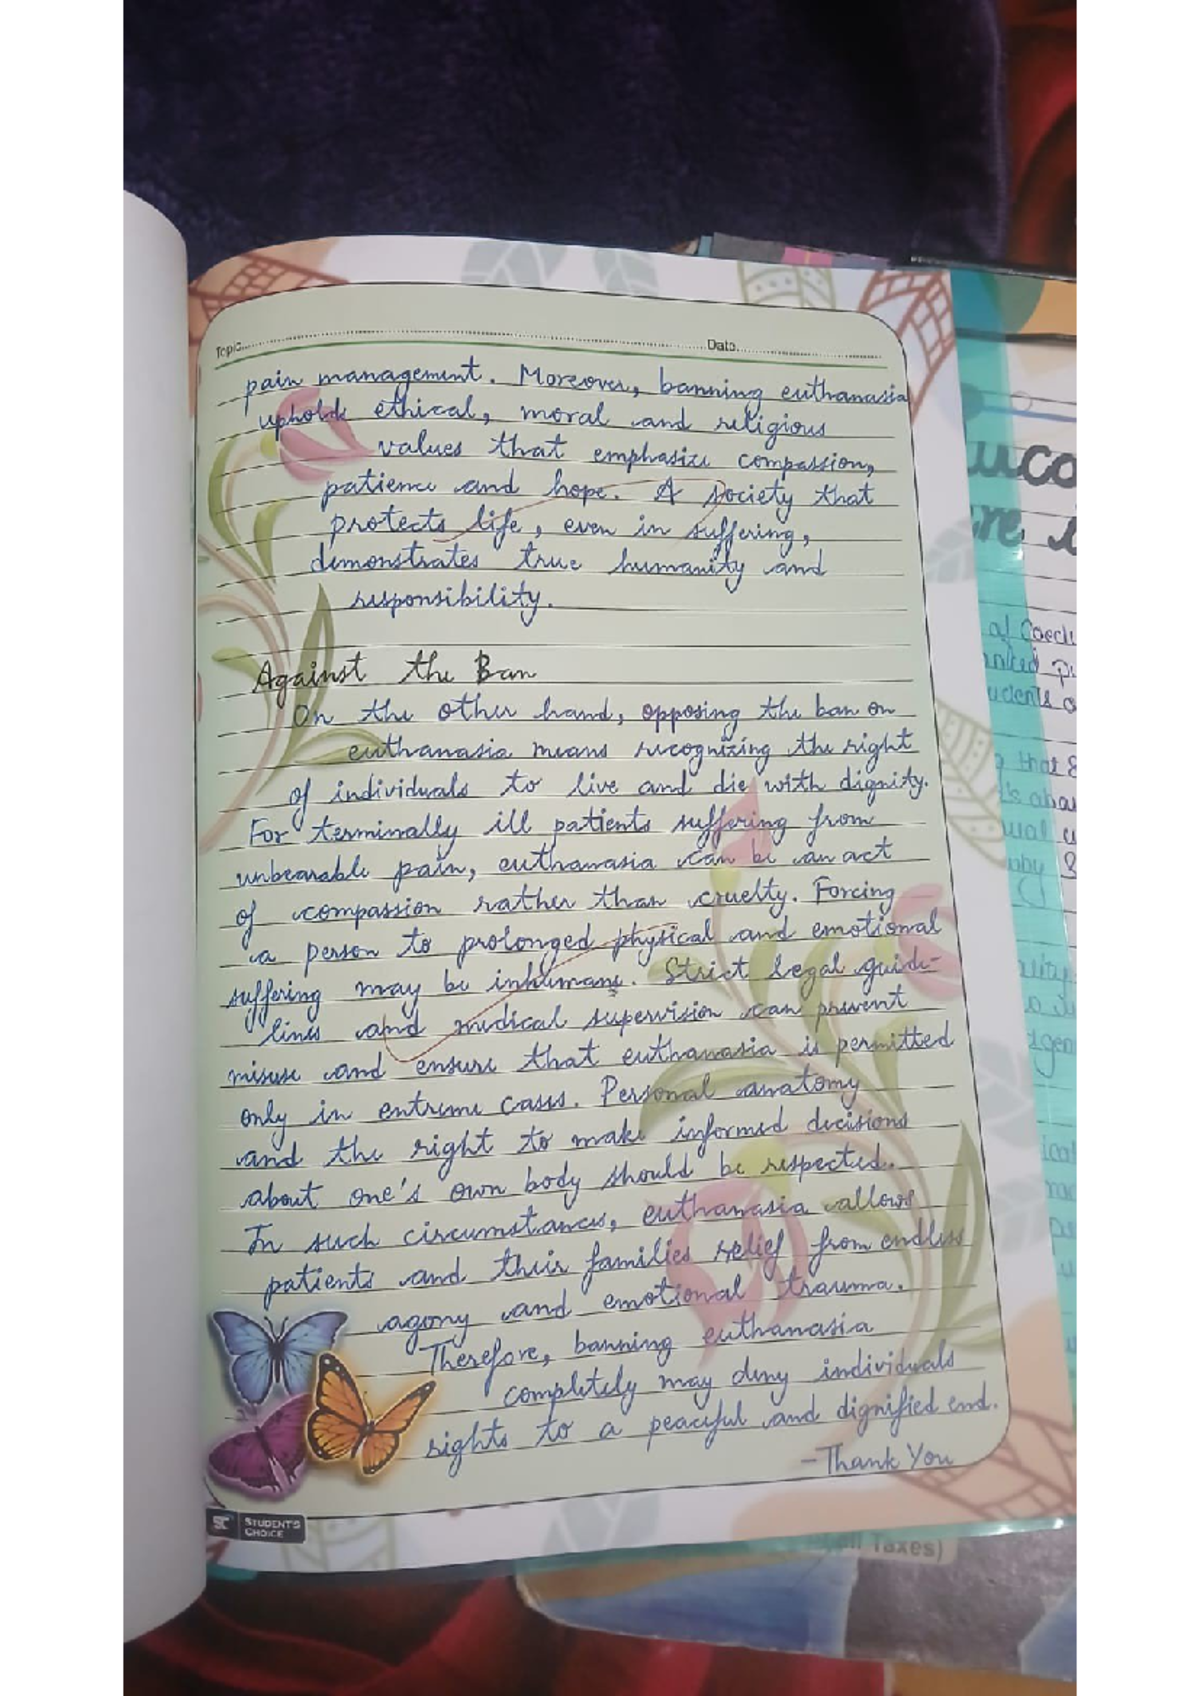 Topic
Date
pain management. Moreover, banning euthanasia
upholds ethical, moral and religious
values that emphasize compassion,
patience and hope. A society that
protects life, even in suffering,
demonstrates true humanity and
responsibility.
Against the Ban
On the other hand, opposing the ban on
euthanasia means recognizing the right
of individuals to live and die with dignity.
For terminally ill patients suffering from
unbearable pain, euthanasia can be an act
of compassion rather than cruelty. Forcing
a person to prolonged physical and emotional
suffering may be inhumane. Strict legal guide-
lines and medical supervision can prevent
misuse and ensure that euthanasia is permitted
only in extreme cases. Personal anatomy
and the right to make informed decisions
about one's own body should be respected.
In such circumstances, euthanasia allows
patients and their families relief from endless
agony and emotional trauma.
Therefore, banning euthanasia
completely may deny individuals
rights to a peaceful and dignified end.
- Thank You
SC STUDENT'S
CHOICE
Taxes)